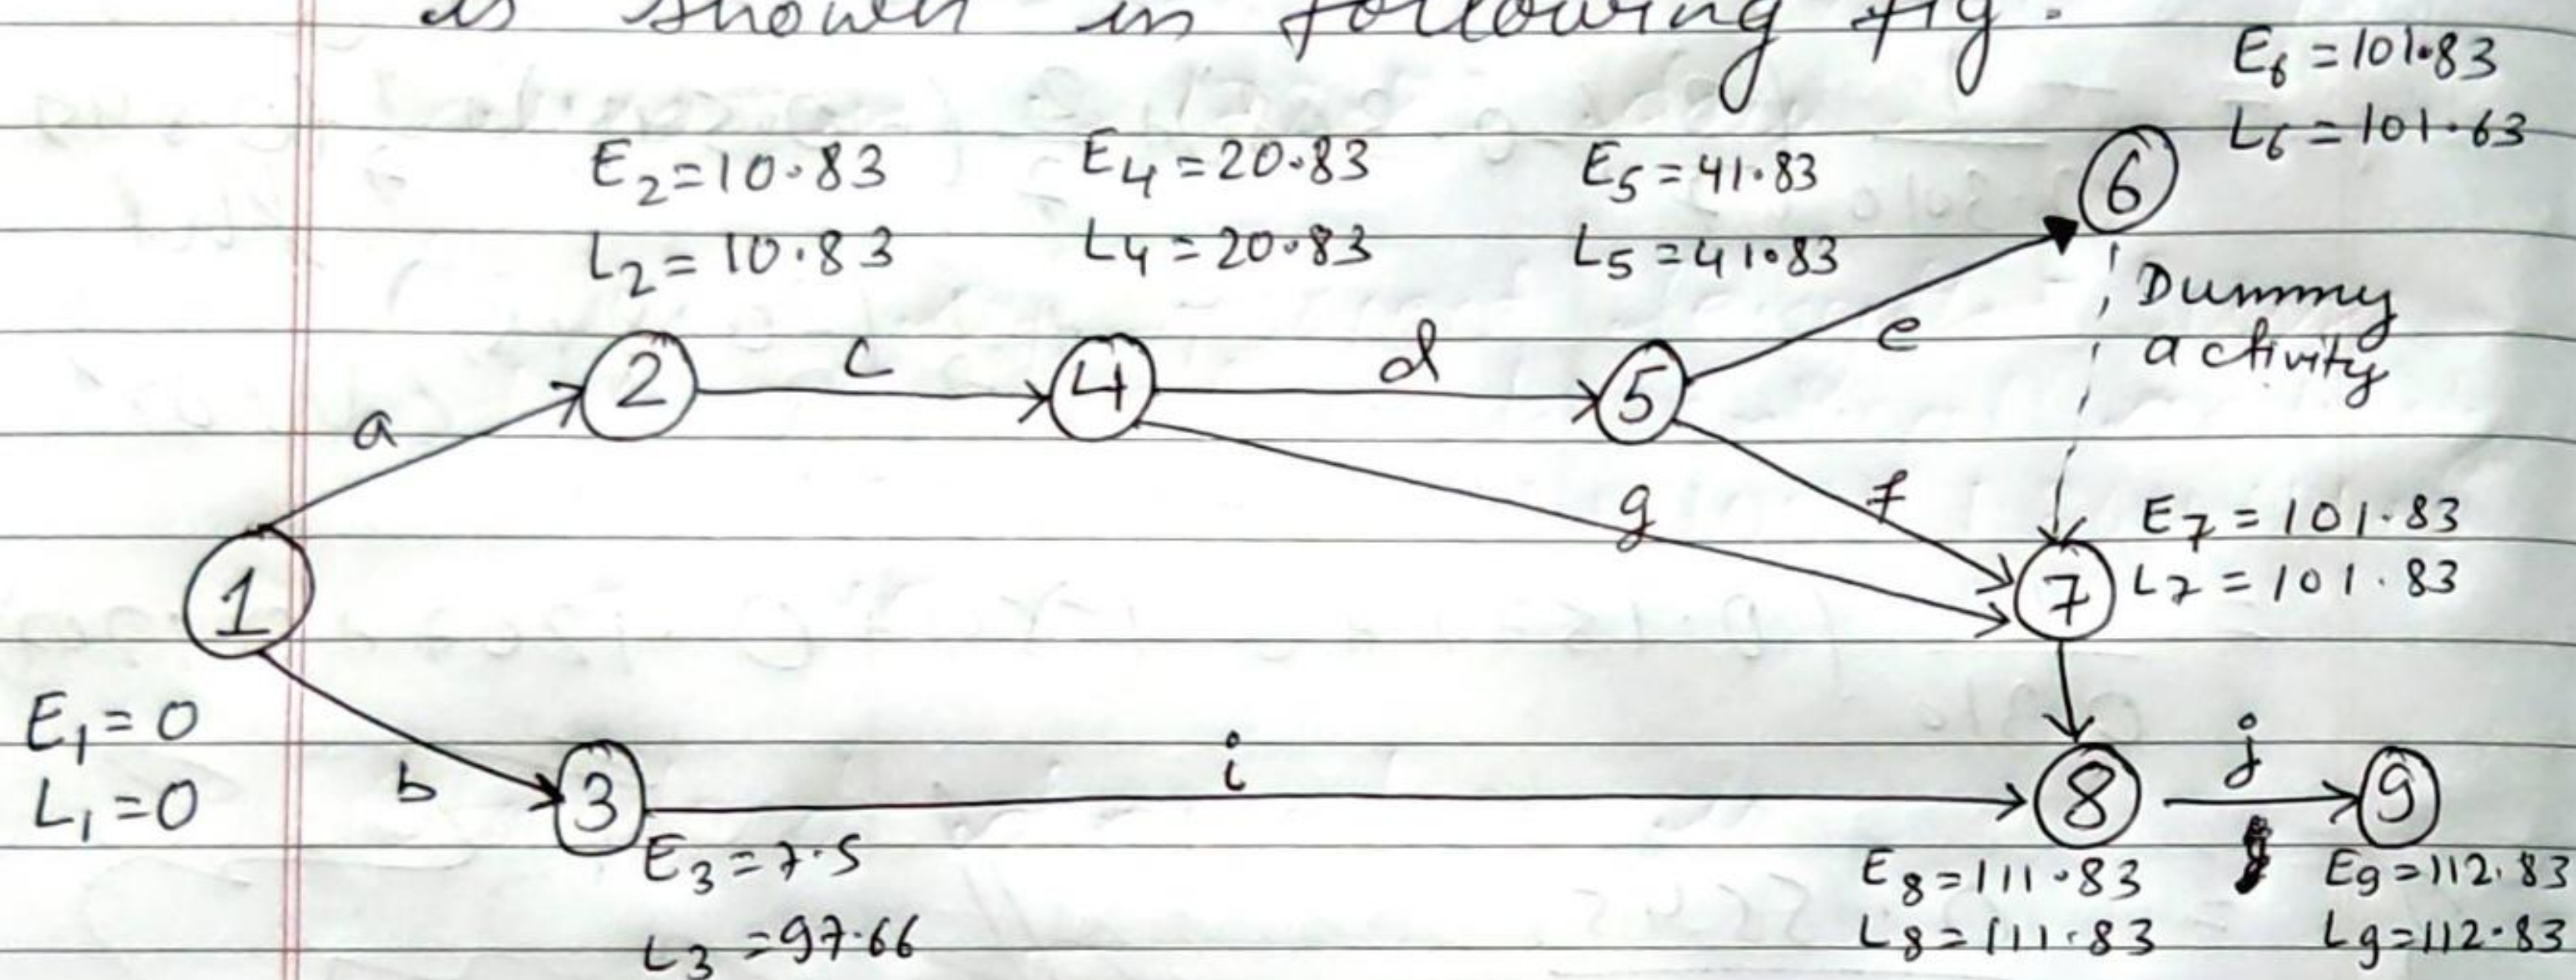 is shown in following fig.
E6 = 101.83
L6 = 101.63
E2 = 10.83
L2 = 10.83
E4 = 20.83
L4 = 20.83
E5 = 41.83
L5 = 41.83
6
Dummy
activity
a
2
c
4
d
5
e
g
f
1
E7 = 101.83
L7 = 101.83
7
E1 = 0
L1 = 0
b
3
i
8
j
9
E3 = 7.5
L3 = 97.66
E8 = 111.83
L8 = 111.83
E9 = 112.83
L9 = 112.83